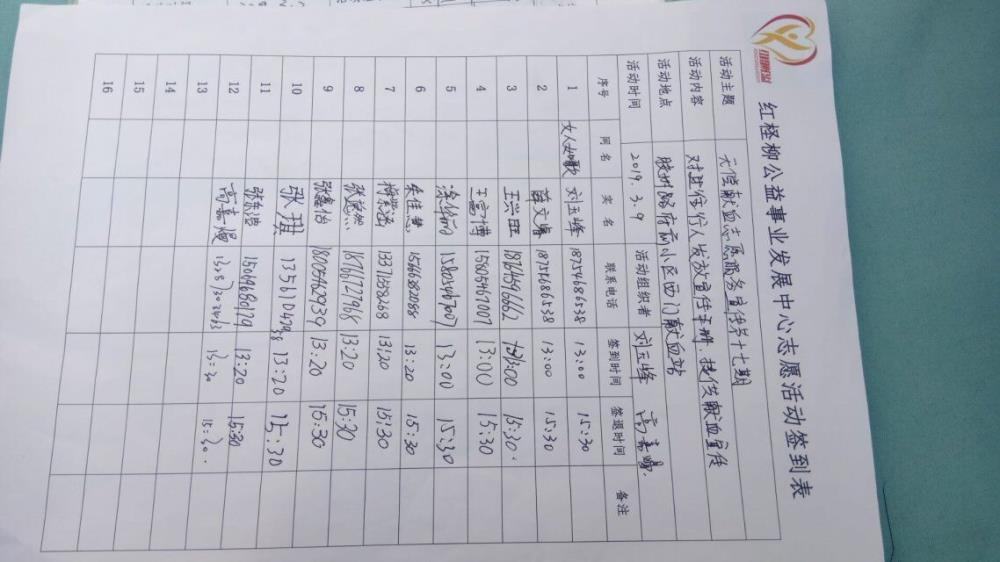 红柽柳公益事业发展中心志愿活动签到表
活动主题 无偿献血志愿服务宣传第十七期
活动内容 对过往行人发放宣传手册,提供献血宣传
活动地点 胶州路府前小区西门献血站
活动时间 2019.3.9 活动组织者 刘玉峰
序号 网名 实名 联系电话 签到时间 签退时间 备注
1 女人如歌 刘玉峰 18754686538 13:00 15:30
2 薛文睿 18754686538 13:00 15:30
3 王兴旺 18764596662 13:00 15:30.
4 王富博 15805467007 13:00 15:30
5 15805467007 13:00 15:30
6 朱佳慧 13:20 15:30
7 13:20 15:30
8 张懿然 13:20 15:30
9 张鑫怡 18005462939 13:20 15:30
10 张琪 13:20 15:30
11 13:20 15:30
12 13:30 15:30.
13
14
15
16